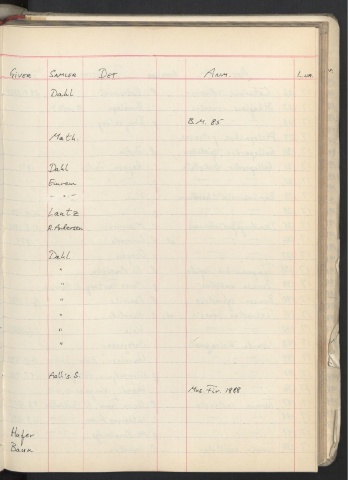 GIVER SAMLER DET ANM.
Dahl
B.M. 85
Math.
Dahl
Lantz
A. Andersen
Dahl
"
"
"
"
"
"
Mus. Für. 1888
Hafer
Baun